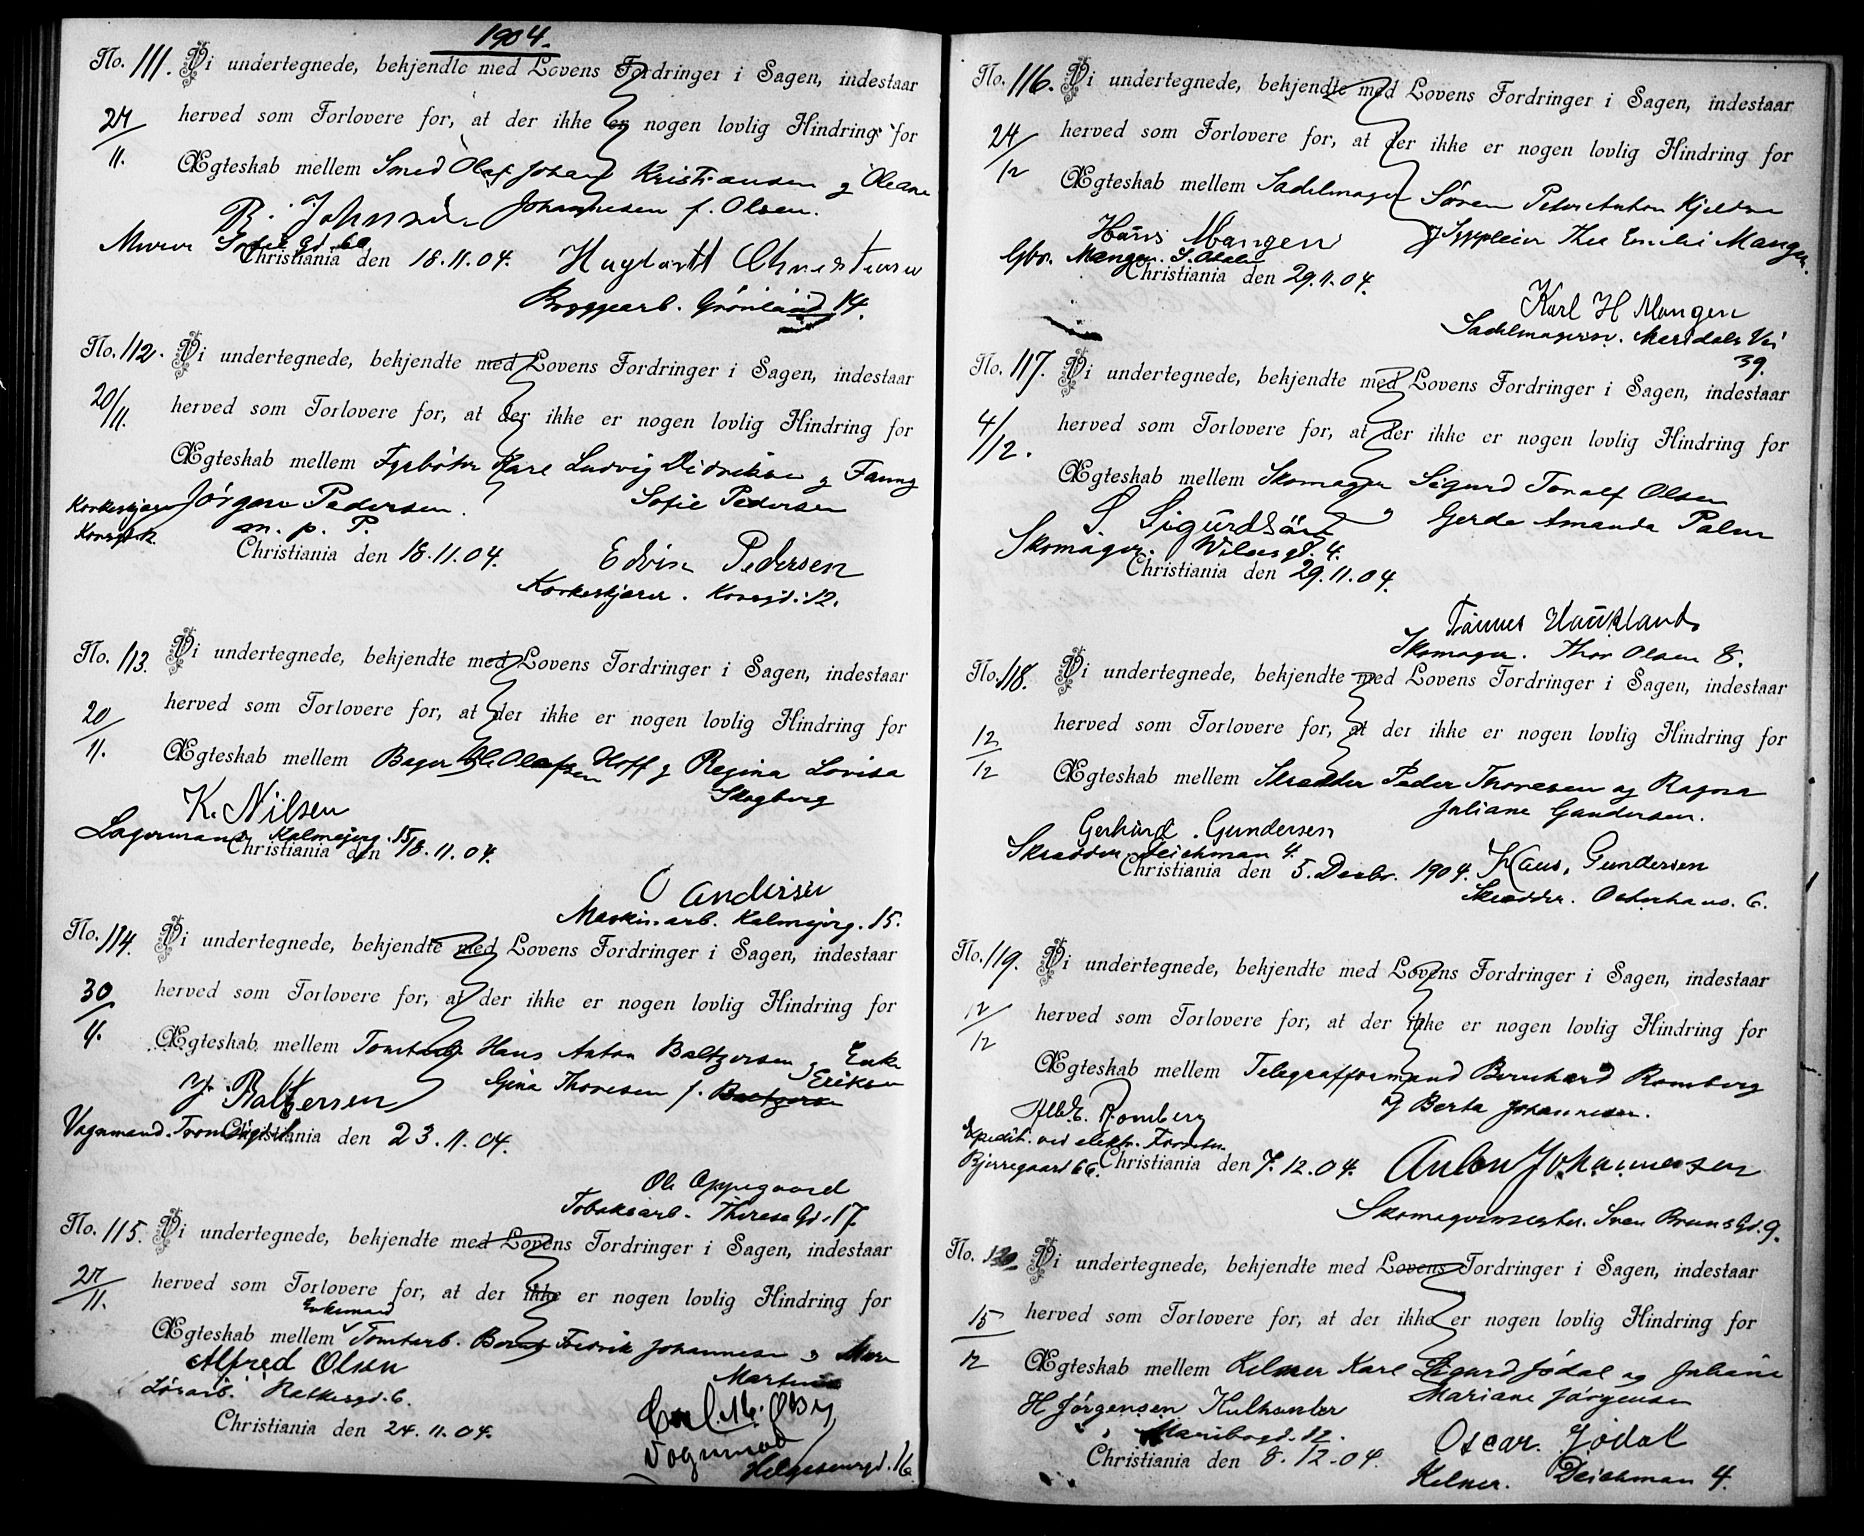 1904.
No. 111. Vi undertegnede, bekjendte med Lovens Fordringer i Sagen, indestaar
27/11. herved som Forlovere for, at der ikke er nogen lovlig Hindring for
Ægteskab mellem Smed Olaf Johan Kristiansen og Oleane
Johannesen f. Olsen.
B. Johnsen
Murer Sofie gd.
Christiania den 18.11.04.
Christensen
Bryggearb. Grønland 14.
No. 112. Vi undertegnede, bekjendte med Lovens Fordringer i Sagen, indestaar
20/11. herved som Forlovere for, at der ikke er nogen lovlig Hindring for
Ægteskab mellem Fyrbøter Karl Ludvig Didriksen og Fanny
Sofie Pedersen
Jörgen Pedersen
m. p. P.
Christiania den 18.11.04.
Edvin Pedersen
Korkeskjærer. Korsgd. 12.
No. 113. Vi undertegnede, bekjendte med Lovens Fordringer i Sagen, indestaar
20/11. herved som Forlovere for, at der ikke er nogen lovlig Hindring for
Ægteskab mellem Bager Ole Olafsen Hoff og Regina Lovisa
Skogberg
K. Nilsen
Lagermand Kalmejerg. 15
Christiania den 18.11.04.
O Andersen
Maskinarb. Kalmejerg. 15.
No. 114. Vi undertegnede, bekjendte med Lovens Fordringer i Sagen, indestaar
30/11. herved som Forlovere for, at der ikke er nogen lovlig Hindring for
Ægteskab mellem Tomtarb. Hans Anton Baltzersen og Enke
Gina Thoresen f. Baltzersen Eriksen
Baltzersen
Vognmand.
Christiania den 23.11.04.
Ole Oppegaard
Tobaksarb. Therese Gd. 17
No. 115. Vi undertegnede, bekjendte med Lovens Fordringer i Sagen, indestaar
27/11. herved som Forlovere for, at der ikke er nogen lovlig Hindring for
Enkemand
Ægteskab mellem Tomtarb. Bernt Fredrik Johannesen og
Alfred Olsen
Ratkesgd. 6.
Christiania den 24.11.04.
Carl M. Øby
Vognmand
Helgesensgd. 16.
No. 116. Vi undertegnede, bekjendte med Lovens Fordringer i Sagen, indestaar
24/12 herved som Forlovere for, at der ikke er nogen lovlig Hindring for
Ægteskab mellem Sadelmager Søren Peter Anton Kjeldsen
og Sypleien Thea Emilie Mangen.
Hans Mangen
Gbr. Mangen. S. Odalen
Christiania den 29.11.04.
Karl H Mangen
Sadelmagersv. Maridals Vei
39.
No. 117. Vi undertegnede, bekjendte med Lovens Fordringer i Sagen, indestaar
4/12. herved som Forlovere for, at der ikke er nogen lovlig Hindring for
Ægteskab mellem Skomager Sigurd Tonalf Olsen
og Gerda Amanda Palm
S. Sigurdsön
Skomager. Wilsesgd. 4.
Christiania den 29.11.04.
Haukland
Skomager. Thor Olsen 8.
No. 118. Vi undertegnede, bekjendte med Lovens Fordringer i Sagen, indestaar
12/12 herved som Forlovere for, at der ikke er nogen lovlig Hindring for
Ægteskab mellem Skrædder Peder Thoresen og Ragna
Juliane Gundersen.
Gerhard Gundersen
Skrædder Deichman 4.
Christiania den 5. Decbr. 1904.
Hans, Gundersen
Skrædder. Osterhaus. 6.
No. 119. Vi undertegnede, bekjendte med Lovens Fordringer i Sagen, indestaar
12/12 herved som Forlovere for, at der ikke er nogen lovlig Hindring for
Ægteskab mellem Telegrafformand Bernhard Romberg
og Berta Johannesen.
Alb. E. Romberg
Expedit. ved elektr.
Bjerregaard 66.
Christiania den 7.12.04.
Anton Johannessen
Skomagermester. Sven Bruns Gd. 9.
No. 120 Vi undertegnede, bekjendte med Lovens Fordringer i Sagen, indestaar
15/12 herved som Forlovere for, at der ikke er nogen lovlig Hindring for
Ægteskab mellem Kelner Karl Sigurd Jødal og Juliane
Mariane Jørgensen
H Jörgensen Kulhandler
Maribogd. 12.
Christiania den 8.12.04.
Oscar. Jødal
Kelner. Deichman 4.